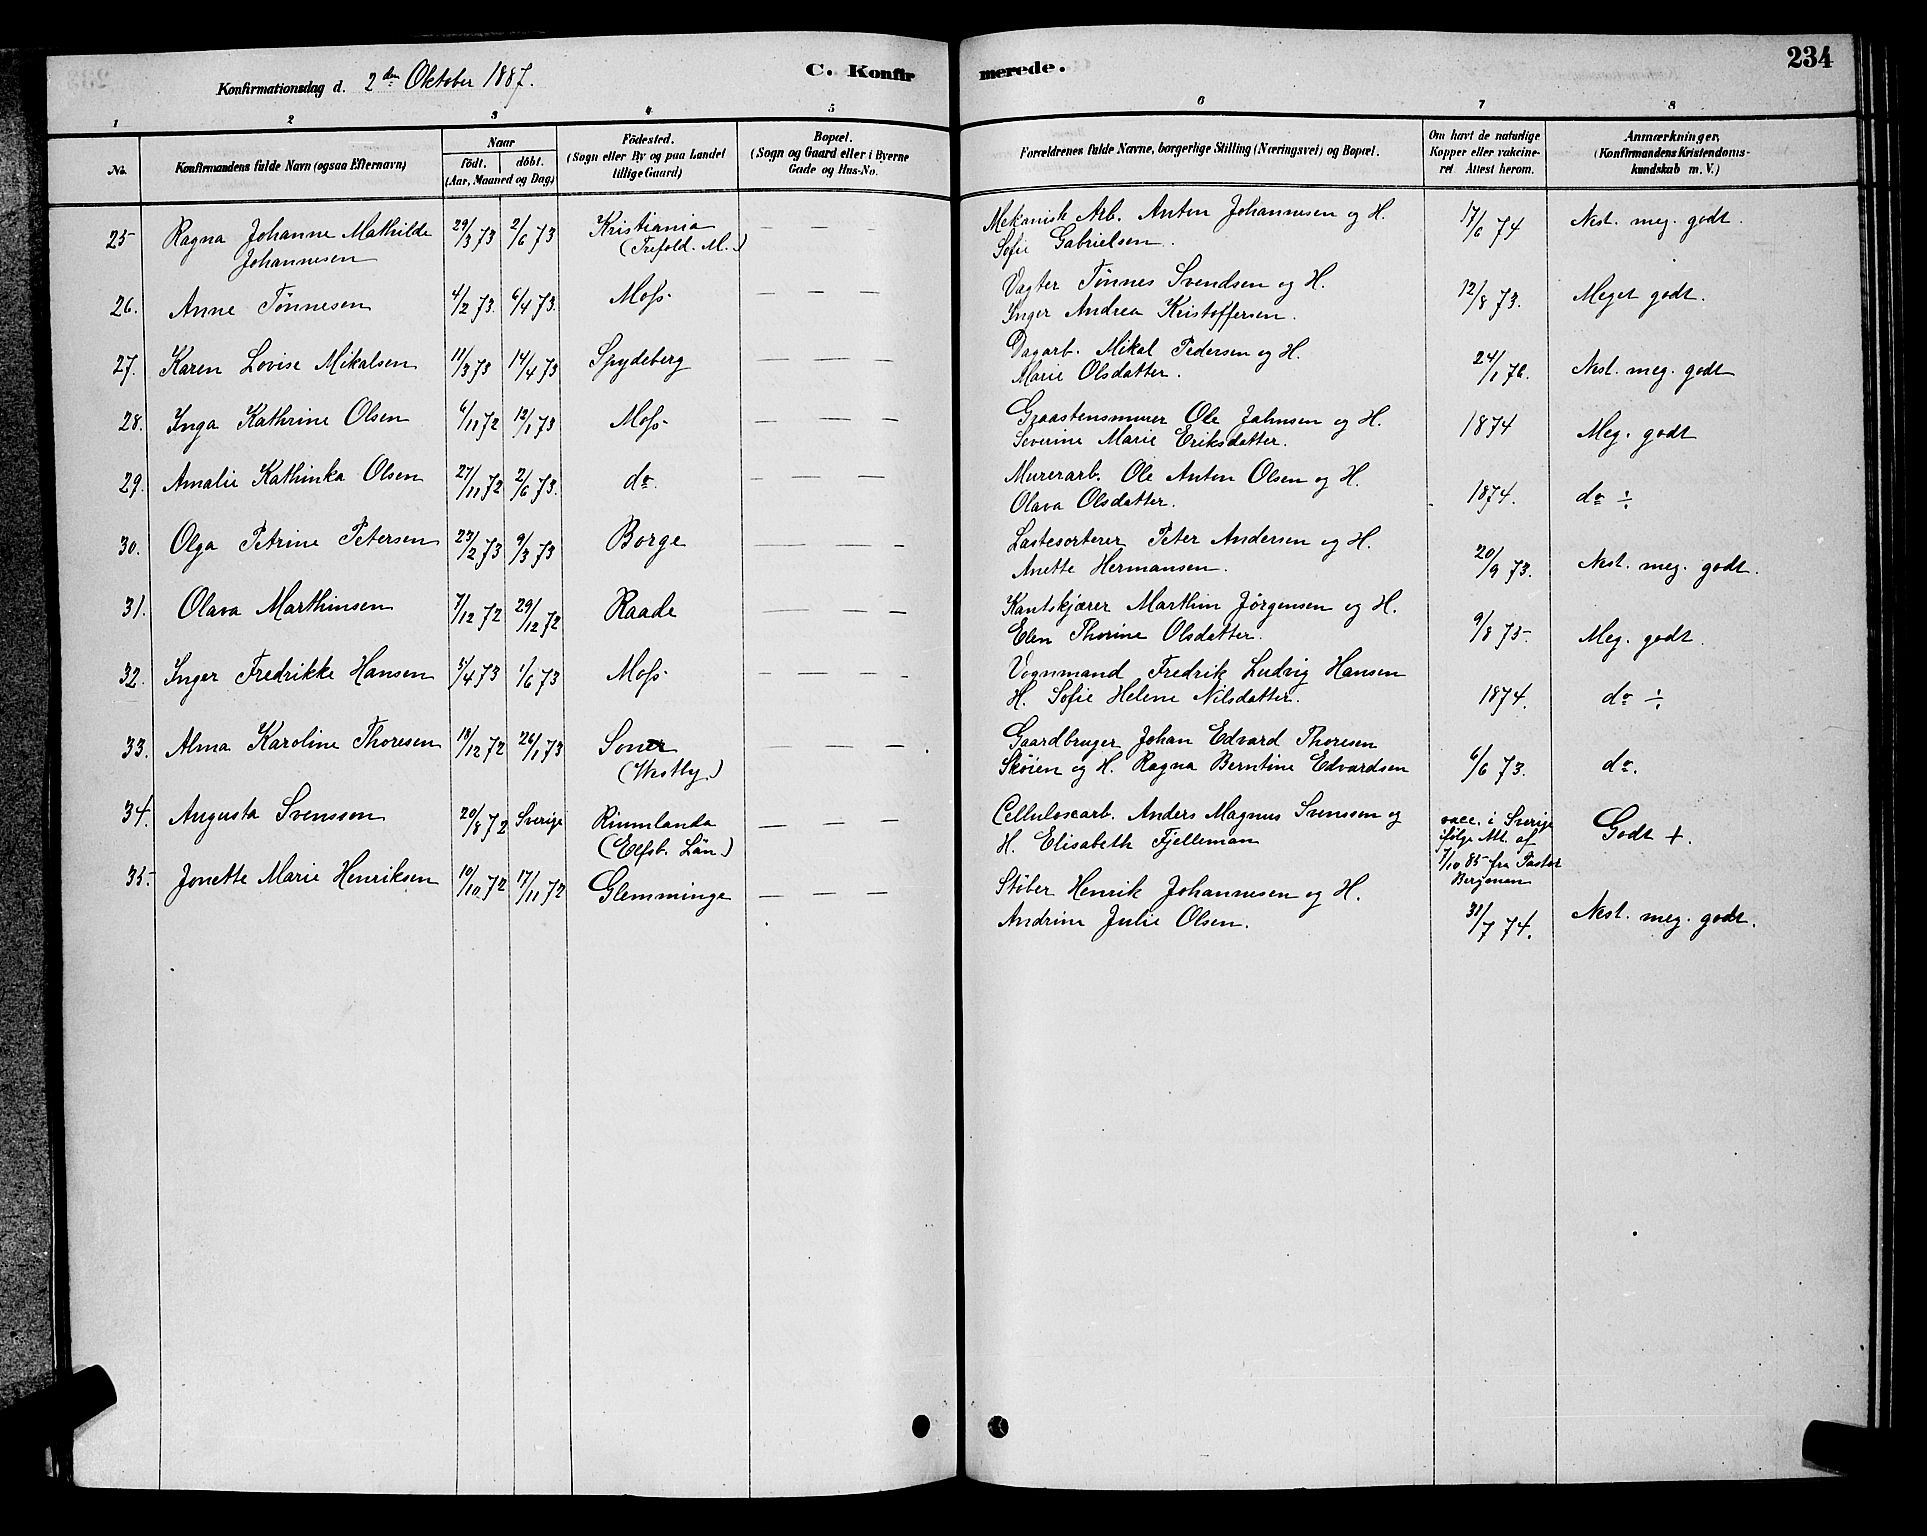 Konfirmationsdag d. 2den Oktober 1887.
C. Konfirmerede.
234
1 2 3 4 5 6 7 8
No.
Konfirmandens fulde Navn (ogsaa Efternavn)
Naar
födt. döbt.
(Aar, Maaned og Dag)
Födested.
(Sogn eller By og paa Landet
tillige Gaard)
Bopæl.
(Sogn og Gaard eller i Byerne
Gade og Hus-No.
Forældrenes fulde Navne, borgerlige Stilling (Næringsvei) og Bopæl.
Om havt de naturlige
Kopper eller vakcine-
ret Attest herom.
Anmærkninger,
(Konfirmandens Kristendoms-
kundskab m. V.)
25 Ragna Johanne Mathilde 29/3 73 2/6 73 Kristiania — — — Mekanisk Arb. Anton Johannesen og H. 17/6 74 Nest. meg. godt.
Johannesen (Trefold. M.) Sofie Gabrielsen.
26. Anne Tönnesen 4/2 73. 6/4 73. Moss — — — Vagter Tönnes Svendsen og H. 12/8 73. Meget godt.
Inger Andrea Kristoffersen.
27. Karen Lovise Mikalsen 11/3 73 14/4 73 Spydeberg — — — Dagarb. Mikal Pedersen og H. 24/1 76. Nest. meg. godt
Marie Olsdatter.
28. Inga Kathrine Olsen 6/11 72 12/1 73 Moss — — — Graastensmurer Ole Jahnsen og H. 1874 Meg. godt
Severine Marie Eriksdatter.
29. Amalie Kathinka Olsen 27/11 72 2/6 73. do. — — — Murerarb. Ole Anton Olsen og H. 1874. do ÷
Olava Olsdatter.
30. Olga Petrine Petersen 23/2 73 9/3 73 Borge — — — Lastesorterer Peter Andersen og H. 20/9 73. Nest. meg. godt.
Anette Hermansen.
31. Olava Marthinsen 7/12 72 29/12 72 Raade — — — Kantskjærer Marthin Jörgensen og H. 9/8 75. Meg. godt.
Elen Thorine Olsdatter.
32. Inger Fredrikke Hansen 5/4 73 1/6 73 Moss — — — Vognmand Fredrik Ludvig Hansen 1874. do ÷
H. Sofie Helene Nilsdatter.
33. Alma Karoline Thoresen 18/12 72 26/1 73 Soner — — — Gaardbruger Johan Edvard Thoresen 6/6 73. do.
(Vestby.) Sköien og H. Ragna Berntine Edvardsen
34. Augusta Svensson 20/8 72 Sverige — — — Cellulosearb. Anders Magnus Svensson og vacc. i Sverige Godt +.
(Elfsb. Län.) H. Elisabeth Fjelleman ifölge Att. af
7/10 85 fra Pastor
35. Jonette Marie Henriksen 10/10 72 17/11 72 Glemminge — — — Stöber Henrik Johannesen og H. 31/7 74. Nest. meg. godt.
Andrine Julie Olsen.